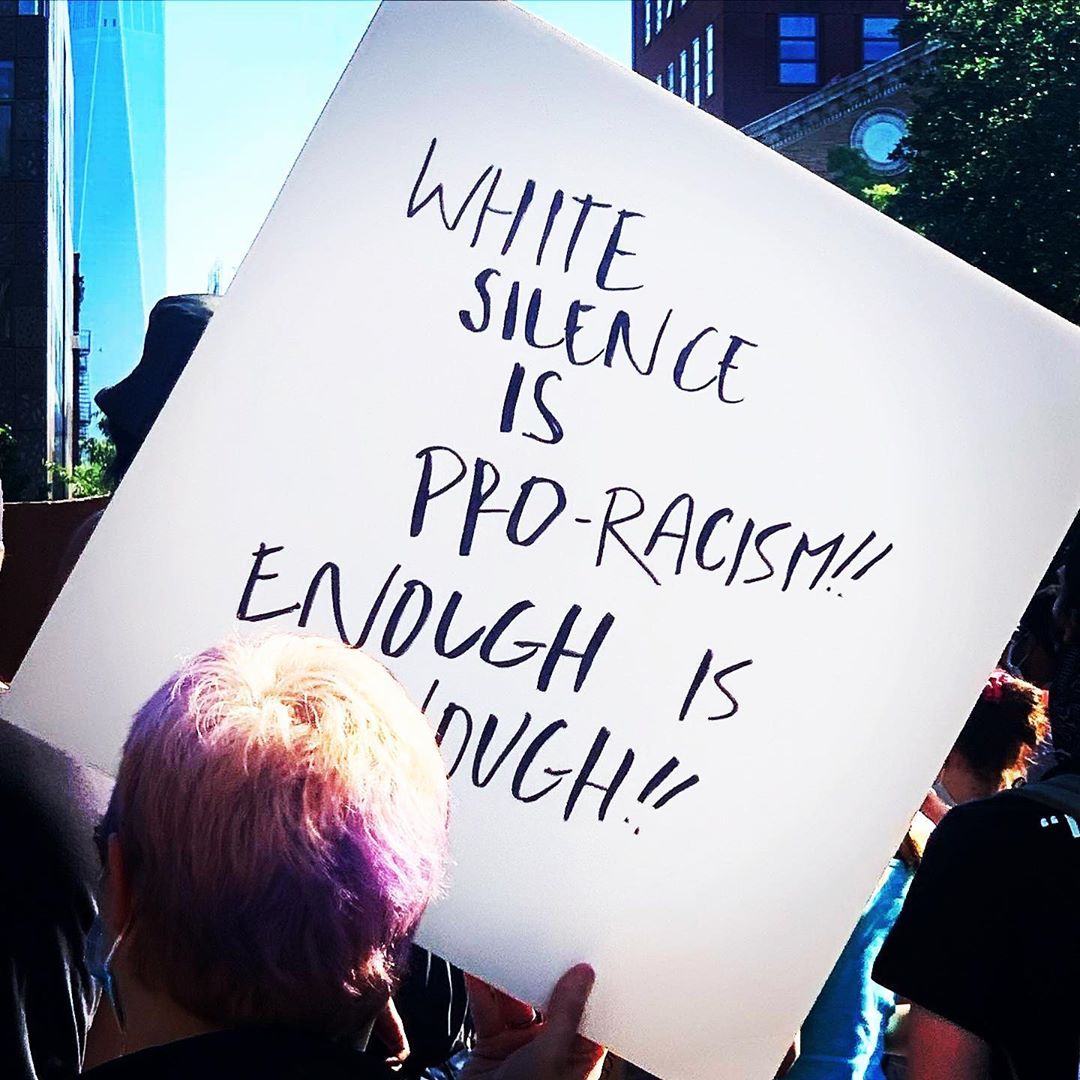 WHITE
SILENCE
IS
PRO-RACISM!!
ENOUGH IS